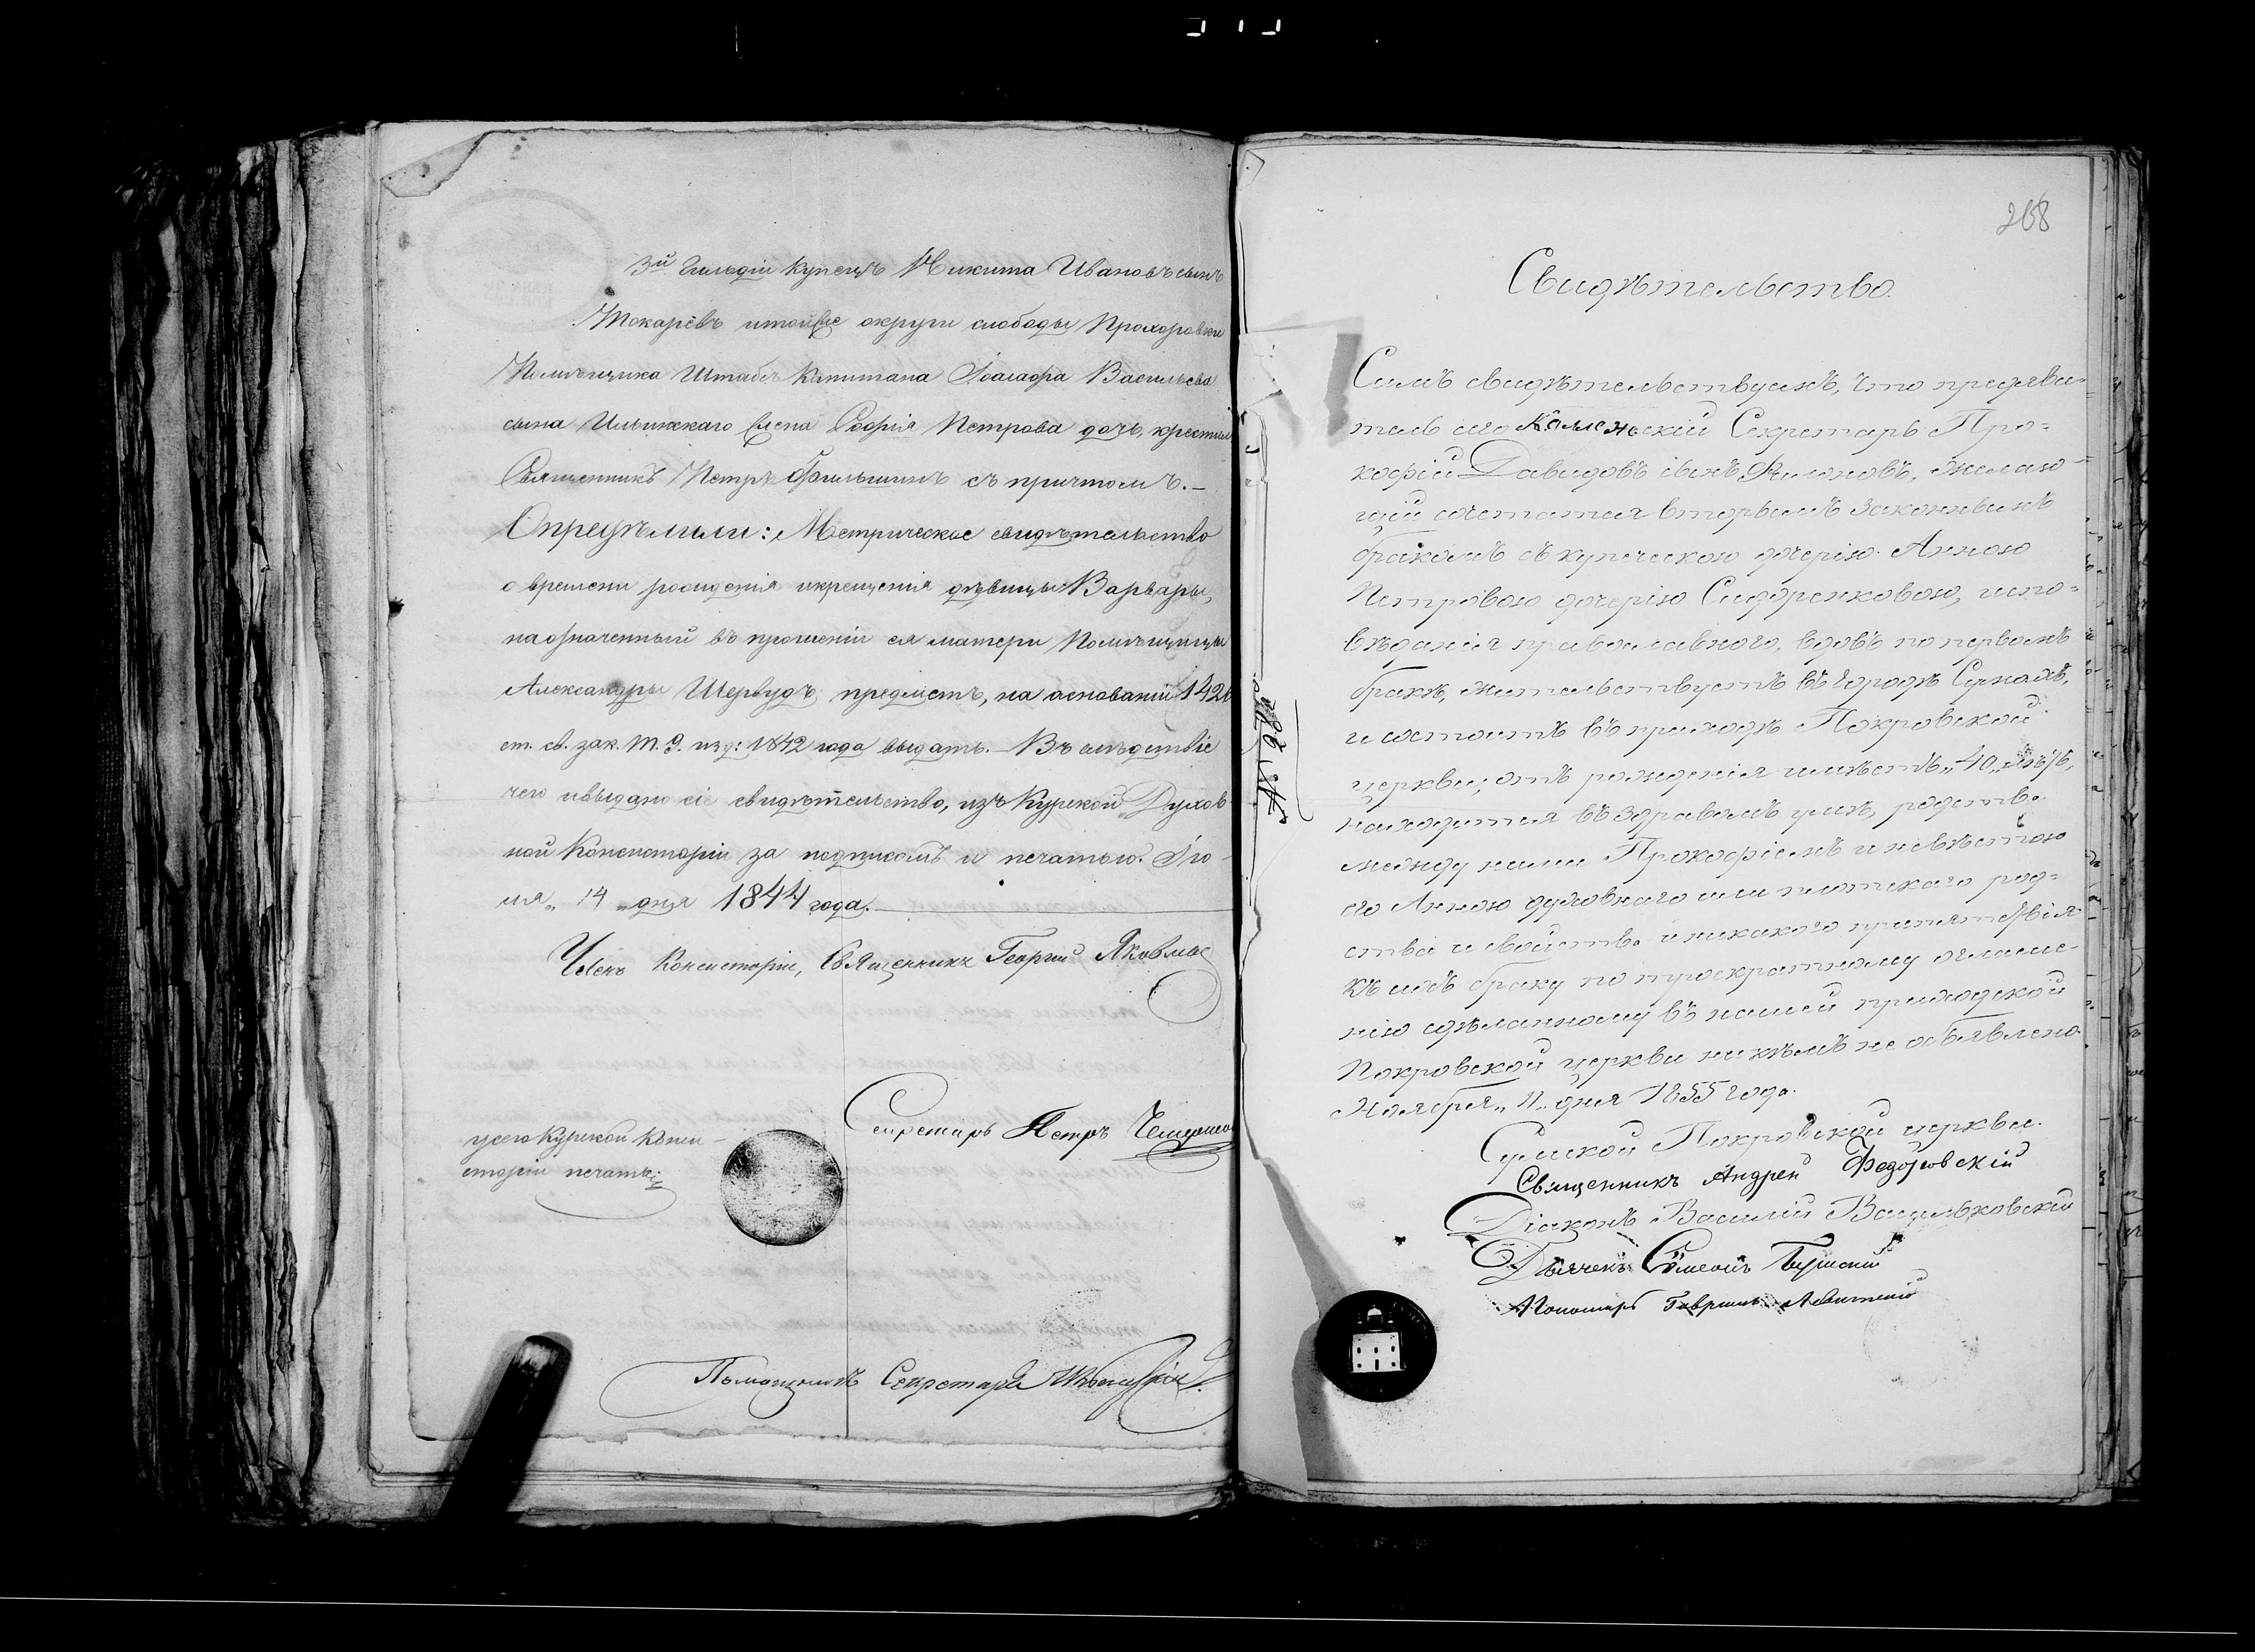 3й Гильдіи купецъ Никита Ивановъ сынъ
Токарёвъ и той же округи слободы Прохоровки
Помѣщика Штабсъ Капитана Васильева
сына Ильинскаго жена Софія Петрова дочь, крестилъ
Священникъ Петръ съ причтомъ.—
Опредѣлили: Метрическое свидѣтельство
о времени рожденія и крещенія дѣвицы Варвары,
на означенный въ прошеніи ея матери Помѣщицы
Александры Шервудъ предметъ, на основаніи 1426
ст. св. зак. Т. 9. изд: 1842 года выдать.—Въ слѣдствіе
чего и выдано сіе свидѣтельство, изъ Курской Духов-
ной Консисторіи за подписомъ и печатью. Ію-
ня „14„ дня 1844 года.
Членъ Консисторіи, Священникъ Георгій Яковлев
Секретарь Петръ
у сего Курской Конси-
сторіи печать
Помощникъ Секретаря
268
Свидѣтельство.
Симъ свидѣтельствуемъ, что предъяви-
тель сего Коллежскій Секретарь Про-
кофій Давидовъ сынъ Филоновъ, желаю-
щій сочетатся вторымъ законнымъ
бракомъ съ купеческою дочерію Анною
Петровою дочерію Сидоренковою, испо-
вѣданія православнаго, вдовъ по первомъ
бракѣ, жительствуетъ въ городѣ Сумахъ,
и состоитъ въ приходѣ Покровской
церкви; отъ рожденія имѣетъ „40„ лѣтъ,
находится въ здравомъ умѣ, родства
между ними Прокофіемъ и невѣстою
его Анною духовнаго или плотскаго род-
ства и свойства и никакого препятствія
къ ихъ браку по троекратному оглаше-
нію сдѣланному въ нашей приходской
Покровской церкви никѣмъ не объявлено.
Ноября „11„ дня 1855 года.
Сумской Покровской церкви.
Священникъ Андрей Федоровскій
Діаконъ Василій Васильковскій
Дьячекъ Симеонъ
Пономарь Гавріилъ Левитскій